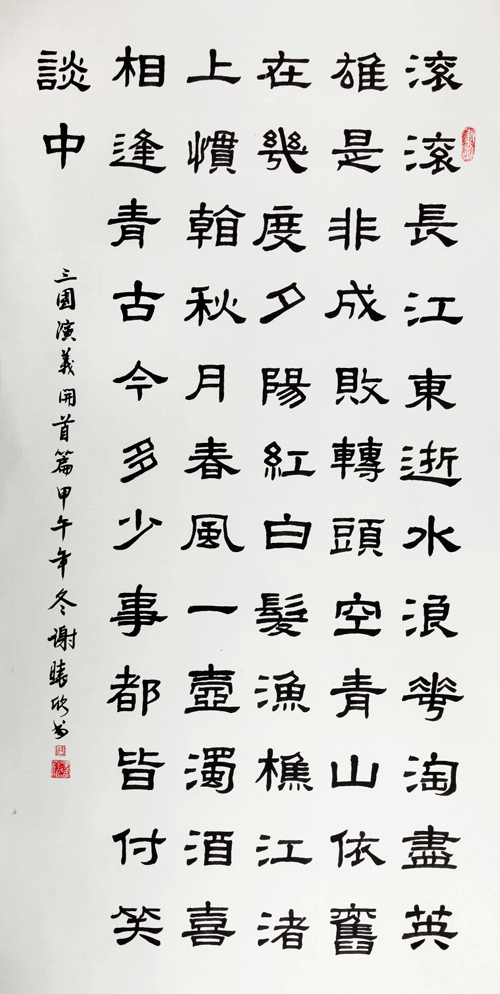 滚滚長江東逝水浪花淘盡英
雄是非成敗轉頭空青山依舊
在幾度夕陽紅白髮漁樵江渚
上慣翰秋月春風一壺濁酒喜
相逢青古今多少事都皆付笑
談中
三國演義開首篇甲午年冬谢欣书